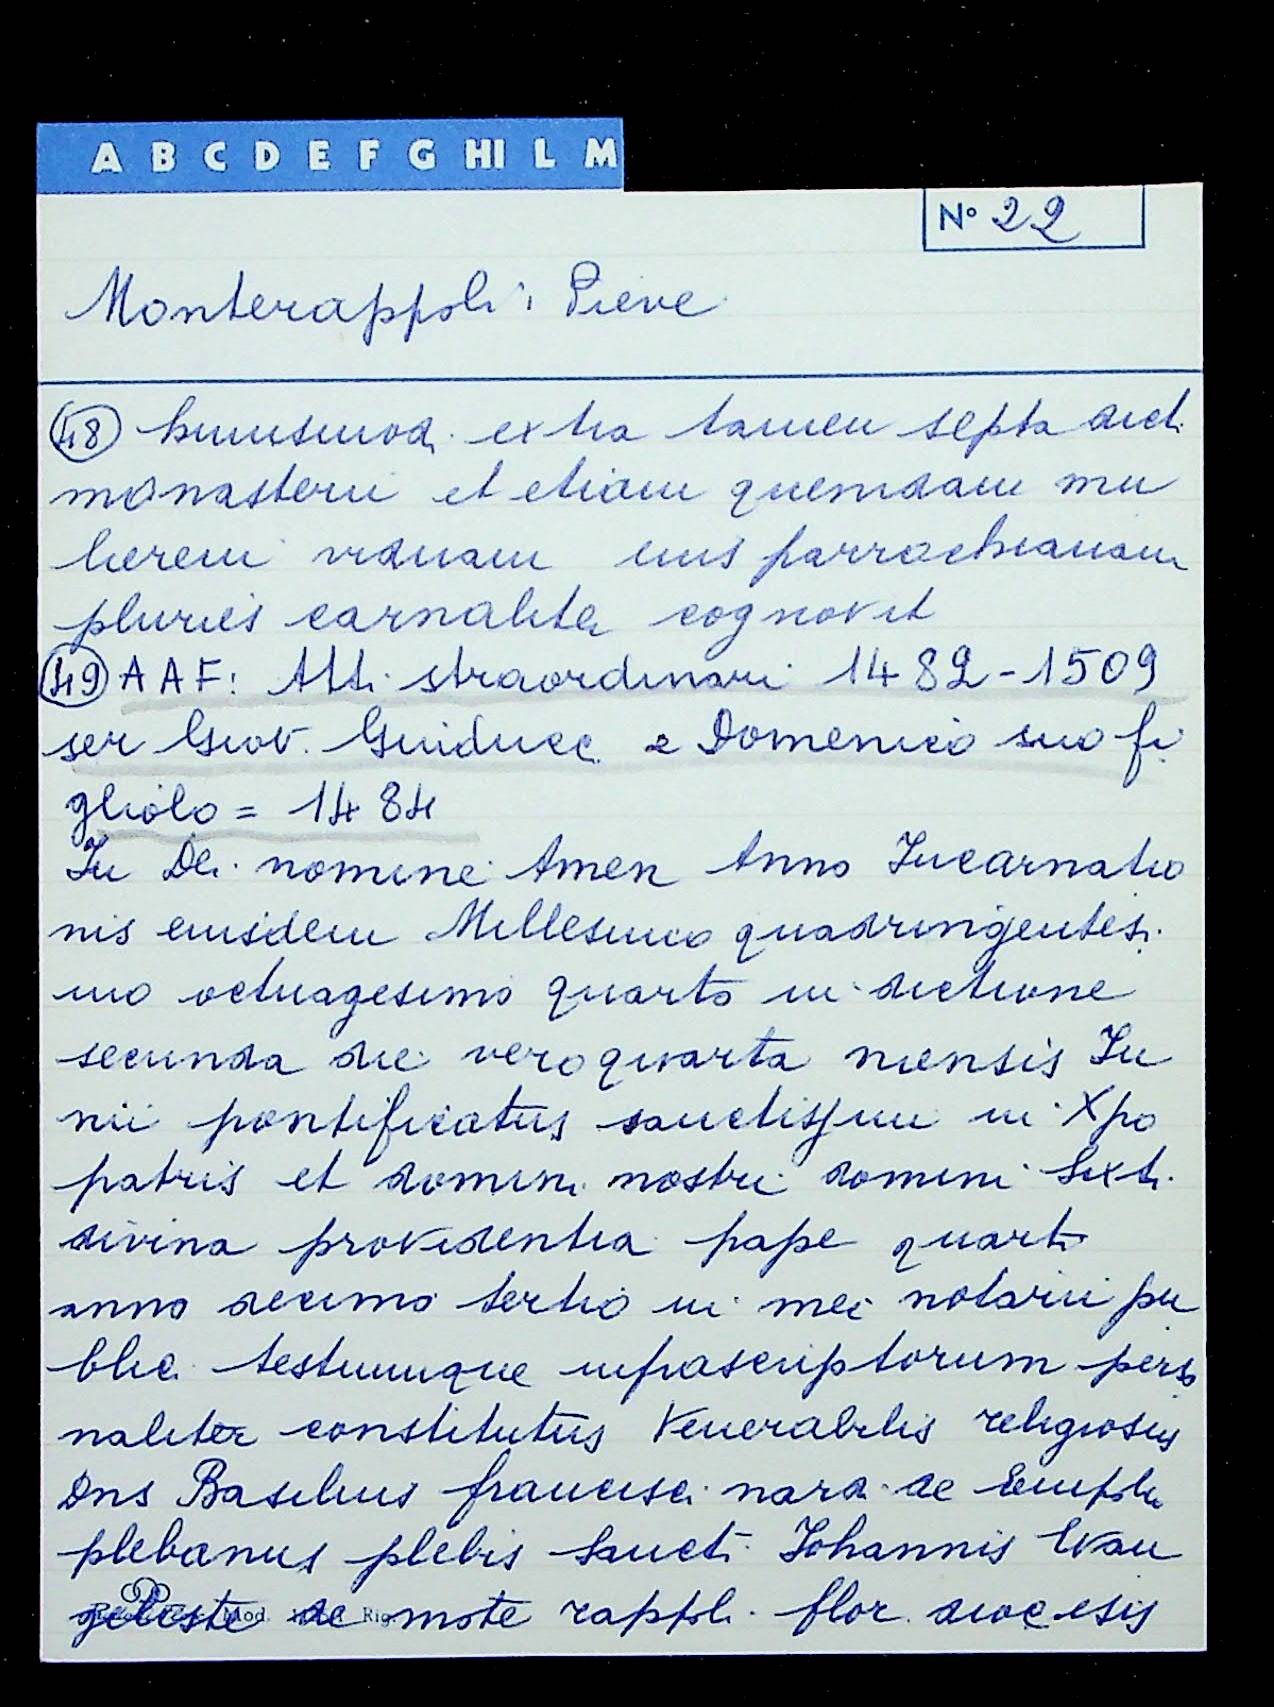 A B C D E F G HI L M
N° 22
Monterappoli: Pieve
48 huiusmodi extra tamen septa dicti
monasterii et etiam quemdam mu
lierem viduam eius parrochianam
pluries carnaliter cognovit
49 AAF: Atti straordinari 1482-1509
ser Giov. Guiducci e Domenico suo fi
gliolo = 1484
In Dei nomine Amen Anno Incarnatio
nis eiusdem Millesimo quadringentesi
mo octuagesimo quarto indictione
secunda die vero quarta mensis Iu
nii pontificatus sanctissimi in Xpo
patris et domini nostri domini Sixti
divina providentia pape quarti
anno decimo tertio in mei notarii pu
blici testiumque infrascriptorum perso
naliter constitutus Venerabilis religiosus
Dns Basilius francisci nardi de Empoli
plebanus plebis Sancti Johannis Evan
geliste de mote rappoli flor. diocesis
Mod. Rig.